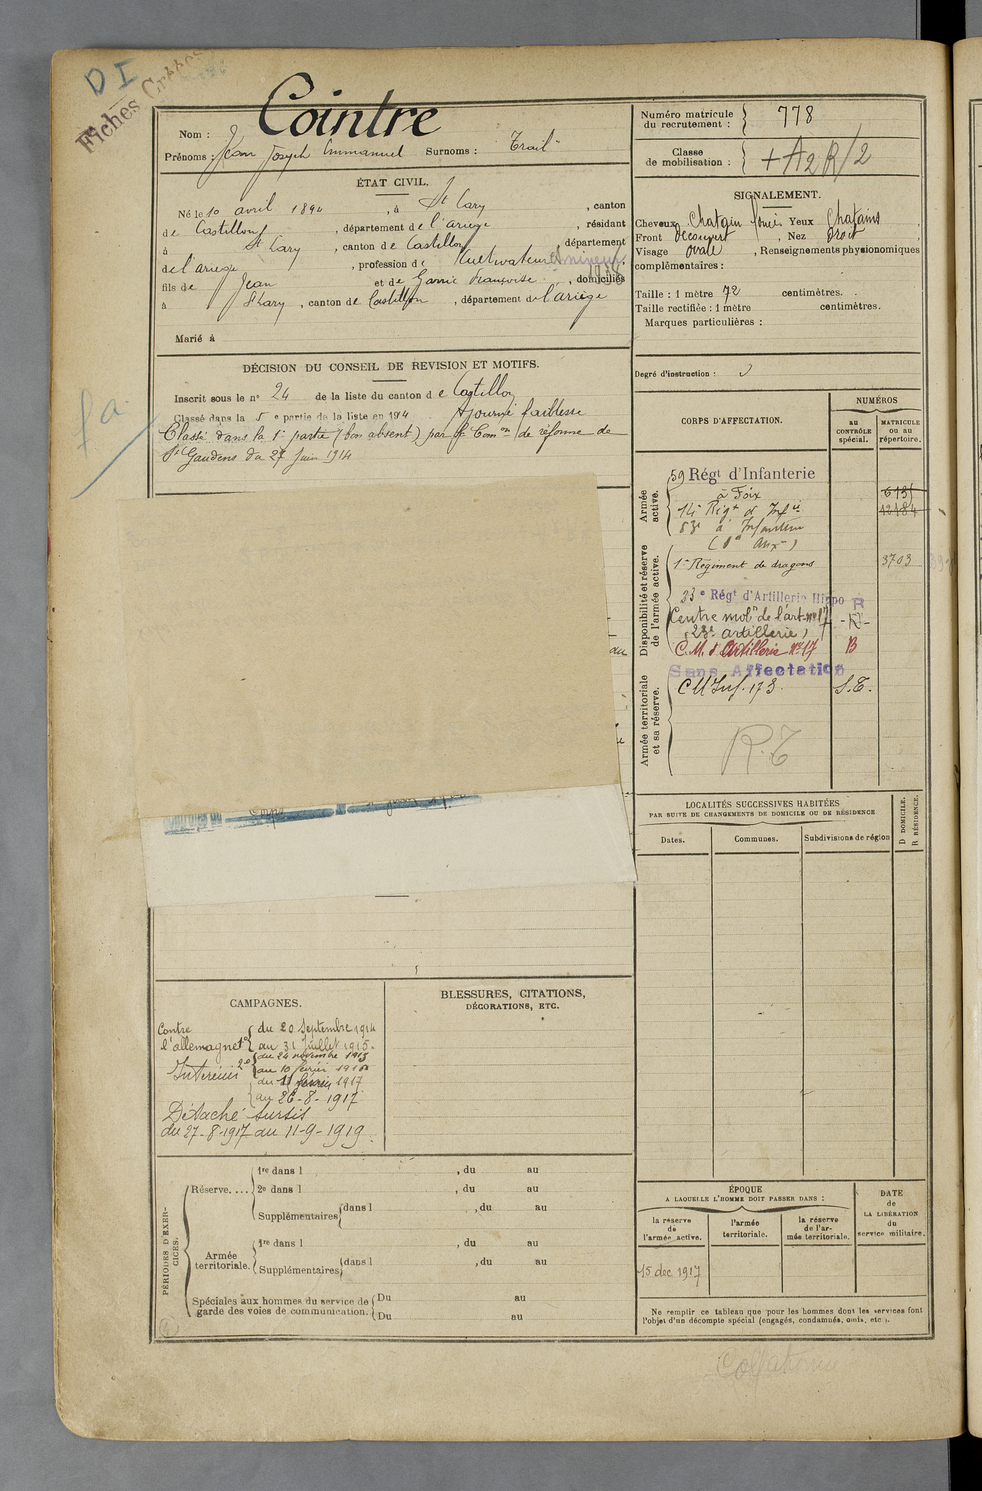 D I
Fiches
Nom : Cointre
Prénoms : Jean Joseph Emmanuel Surnoms : Trail
ÉTAT CIVIL.
Né le 10 avril 1894, à St Lary, canton
de Castillon, département de l'ariege, résidant
à St Lary, canton de Castillon, département
de l'ariege, profession de Cultivateur mineur
1938
fils de Jean et de Gannic Françoise, domiciliés
à St Lary, canton de Castillon, département de l'ariège
Marié à
DÉCISION DU CONSEIL DE REVISION ET MOTIFS.
Inscrit sous le n° 24 de la liste du canton de Castillon
Classé dans la 5e partie de la liste en 1914 Ajourné faiblesse
Classé dans la 1e partie (bon absent) par la Comon de réforme de
St Gaudens du 27 Juin 1914
fa
CAMPAGNES.
Contre l'allemagne 1° du 20 Septembre 1914
au 31 Juillet 1915.
Intérieur 2° du 24 novembre 1915
au 10 février 1916
du 11 février 1917
au 26-8-1917
Détaché sursis
du 27-8-1917 au 11-9-1919
BLESSURES, CITATIONS,
DÉCORATIONS, ETC.
PÉRIODES D'EXERCICES.
Réserve....
1re dans l , du au
2e dans l , du au
Supplémentaires dans l , du au
Armée territoriale.
1re dans l , du au
Supplémentaires dans l , du au
Spéciales aux hommes du service de garde des voies de communication.
Du au
Du au
Numéro matricule du recrutement : 778
Classe de mobilisation : + A2R/2
SIGNALEMENT.
Cheveux Chatain foncé Yeux Chatains,
Front découvert, Nez droit
Visage ovale, Renseignements physionomiques
complémentaires :
Taille : 1 mètre 72 centimètres.
Taille rectifiée : 1 mètre centimètres.
Marques particulières :
Degré d'instruction : 3
CORPS D'AFFECTATION.
NUMÉROS
AU CONTRÔLE spécial.
MATRICULE ou au répertoire.
Armée active.
59 Régt d'Infanterie
à Foix
14e Régt d'Infie
53e d'Infanterie
12184
Disponibilité et réserve de l'armée active.
1er Régiment de dragons 3703
33e Régt d'Artillerie Hippo R
Centre mobn de l'art. n° 17 - R -
(28e artillerie)
C.M. d'Artillerie N° 17 B
Sans Affectation
Armée territoriale et sa réserve.
CM Inf. 173. S.T.
R.T
LOCALITÉS SUCCESSIVES HABITÉES
PAR SUITE DE CHANGEMENTS DE DOMICILE OU DE RÉSIDENCE
Dates. Communes. Subdivisions de région D DOMICILE. R RÉSIDENCE.
ÉPOQUE
A LAQUELLE L'HOMME DOIT PASSER DANS :
la réserve de l'armée active.
l'armée territoriale.
la réserve de l'armée territoriale.
DATE de LA LIBÉRATION du service militaire.
15 dec 1917
Ne remplir ce tableau que pour les hommes dont les services font
l'objet d'un décompte spécial (engagés, condamnés, omis, etc.).